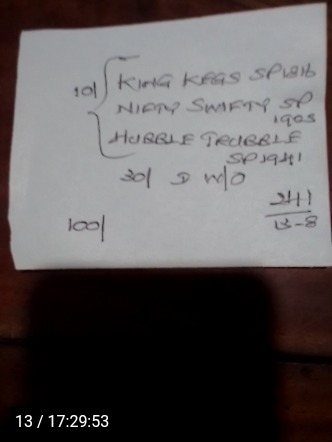 10/ KING KEGS SP1816
NIFTY SWIFTY SP
1905
HUBBLE TRUBBLE
SP1941
30/ D W/O
241
13-8
100/
13 / 17:29:53